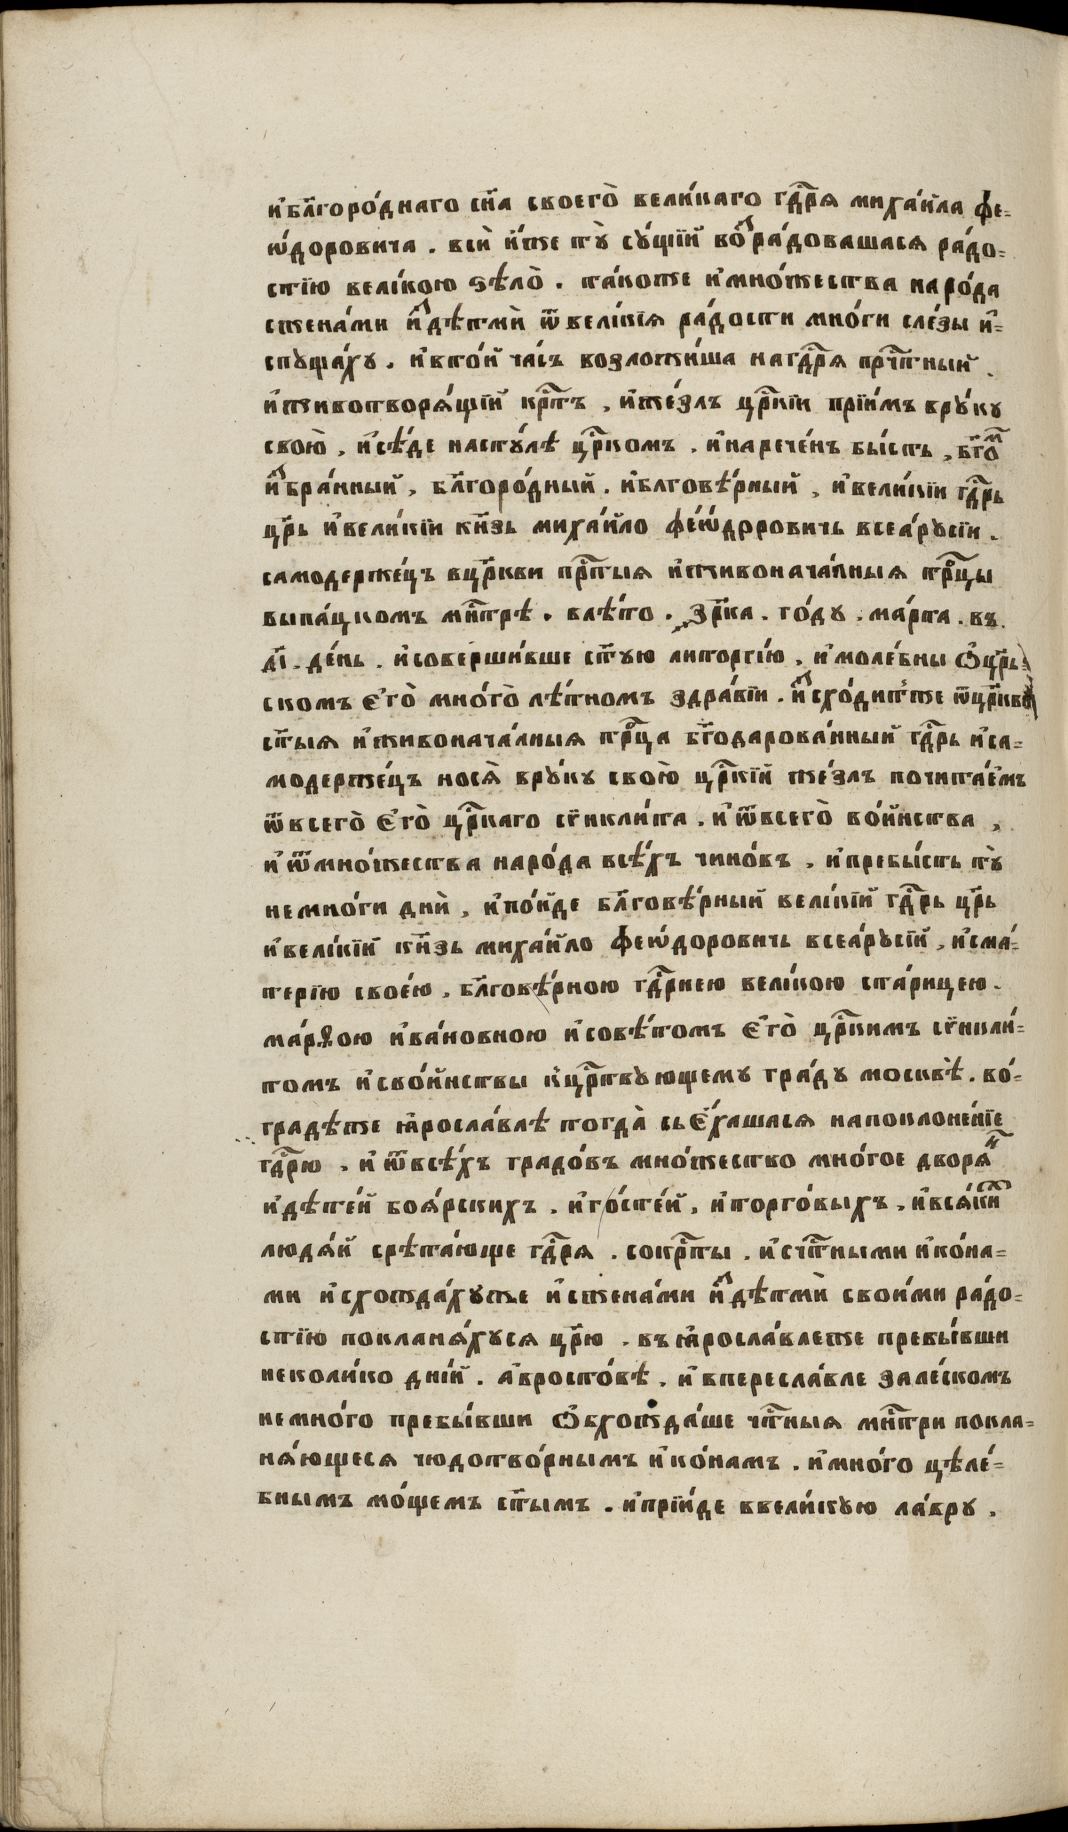 и҆бл҃горо́днаго сн҃а своего̀ вели́каго гдⷭ҇ря миха́ила фе=
ѡ҆́доровича . вси̑ и҆́же тꙋ̀ сꙋ́щїй воⷥра́довашася ра́до=
стїю вели́кою ѕѣло̀ . та́коже и҆мно́жества наро́да
сжена́ми и҆ⷥдѣтмѝ ѿвели́кїѧ ра́дости мно́ги сле́зы и҆=
спꙋща́хꙋ . и҆вто́й ча́съ возложи́ша нагдⷭ҇рѧ прчⷭ҇тный .
и҆животворѧ́щїй крⷭ҇тъ , и҆же́злъ црⷭ҇кїи прїи́мъ врꙋ́кꙋ
свою̀ , и҆сѣ́де настꙋ́лѣ црⷭ҇комъ . и҆нарече́нъ бы́сть , бг҃оⷨ
и҆ⷥбра́нный , бл҃горо́дный . и҆блговѣ́рный , и҆вели́кїи гдⷭ҇рь
цр҃ь и҆вели́кїи кн҃зь миха́йло фео́ѡдоровичь всеа́рꙋсїи .
самодерже́цъ вцр҃кви прⷭ҇тыѧ и҆живонача́лныѧ трⷪ҇цы
выпа́цкомъ мнⷭ҇трѣ . влѣ́то . ҂зр҃ка . го́дꙋ . ма́рта . въ .
д҃і . де́нь . и҆соверши́вше ст҃ꙋю литоргі́ю , и҆моле́бны ѡ҆цр҃ь=
скомъ є҆го̀ мно́го̀ лѣ́тномъ здра́вїи . и҆ⷥсхо́дитже ѿцр҃кве
ст҃ыѧ и҆живонача́лныѧ трⷪ҇ца бг҃одарова́нный гдⷭ҇рь и҆са=
модерже́цъ носѧ̀ врꙋ́кꙋ свою̀ црⷭ҇кїй же́злъ почита́емъ
ѿвсего̀ є҆го̀ црⷭ҇каго сѵнкли́та . и҆ѿвсего̀ во́йнства ,
и҆ѿмно́жества наро́да всѣ́хъ чино́въ , и҆пребы́сть тꙋ̀
немно́ги дни̑ , и҆по́йде бл҃говѣ́рный вели́кїй гдⷭ҇рь цр҃ь
и҆вели́кїй кн҃зь миха́йло феѡ́доровичь всеа́рꙋсїй , и҆сма́=
терїю свое́ю , бл҃говѣ́рною гдⷭ҇рнею вели́кою ста́рицею .
ма́рѳою и҆ва́новною и҆совѣ́томъ є҆го̀ црⷭ҇кимъ сѵнкли́=
томъ и҆сво́йнствы к̾црⷭ҇твꙋющемꙋ гра́дꙋ москвѣ̀ . во́=
градѣже ꙗ҆росла́влѣ тогда̀ сьє҆́хашасѧ напоклоне́нїе
гдⷭ҇рю , и҆ѿвсѣ́хъ градо́въ мно́жество мно́гое дворѧ́ⷩ
и҆дѣте́й боѧ́рскихъ . и҆го́сте́й , и҆торго́выхъ , и҆всѧ́киⷯ
людѧ́й срѣта́юще гдⷭ҇рѧ . сокрⷭ҇ты . и҆счⷭ҇тными и҆ко́на=
ми и҆схожда́хꙋже и҆сжена́ми и҆ⷥдѣтмѝ свои́ми ра́до=
стїю покланѧ́хꙋсѧ цр҃ю . въꙗ҆росла́влеже пребы́вши
неколи́ко дні́й . а҆вросто́вѣ . и҆впересла́вле зале́скомъ
немно́го пребы́вши ѡ҆бхожда́ше чⷭ҇тныѧ мнⷭ҇три покла=
нѧ́ющесѧ чюдотво́рнымъ и҆ко́намъ . и҆мно́го цѣле́=
бнымъ мо́щемъ ст҃ымъ . и҆прїи́де ввели́кꙋю ла́врꙋ .